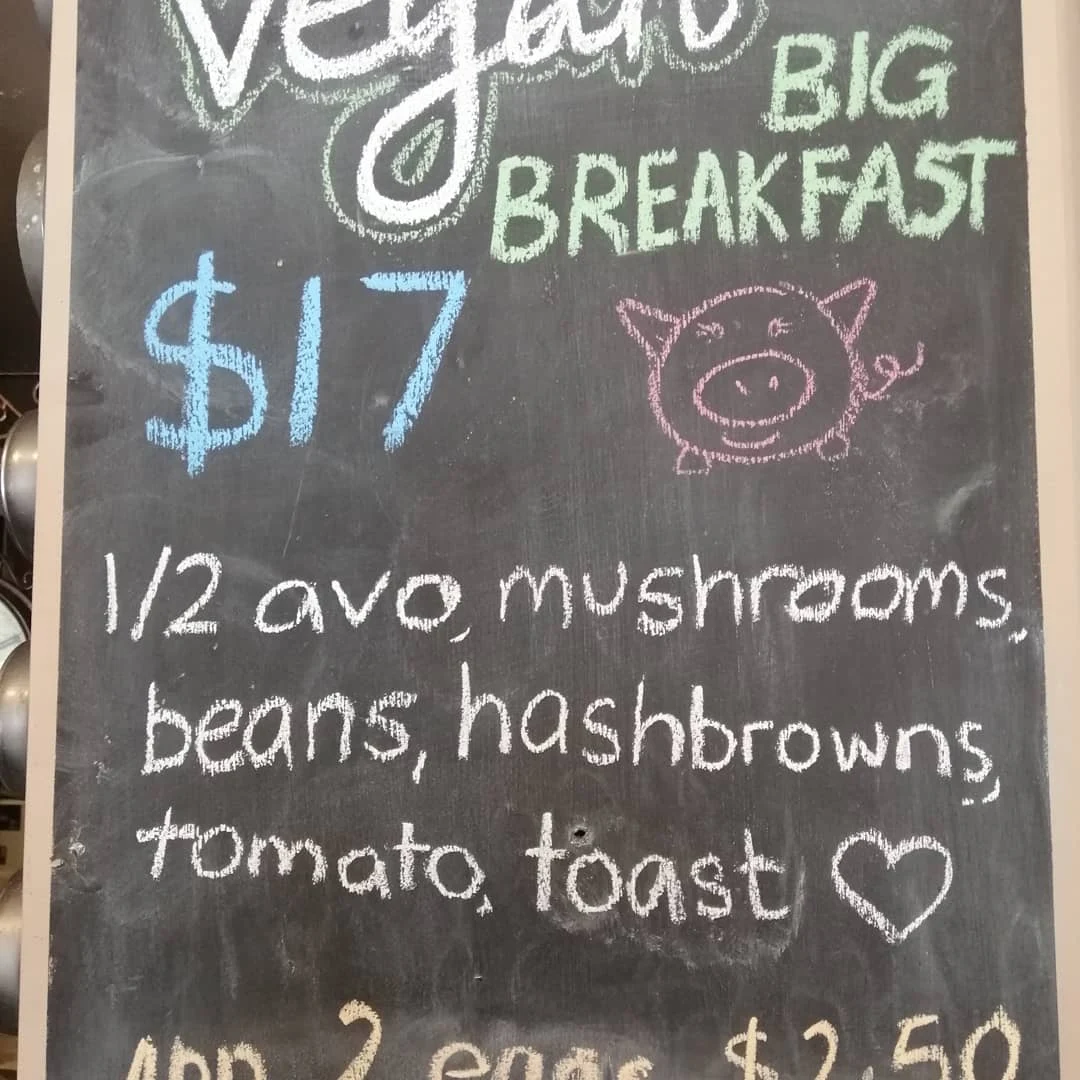 Vegan
BIG
BREAKFAST
$17
1/2 avo, mushrooms,
beans, hashbrowns,
tomato, toast
ADD 2 eggs $2.50